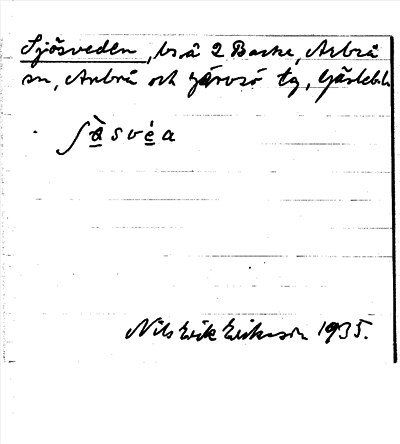 Sjösveden, bs å 2 Backe, Arbrå
sn, Arbrå och Järvsö tg, Gävlebl.
ʃà̱své̱a
Nils Erik Eriksson 1935.